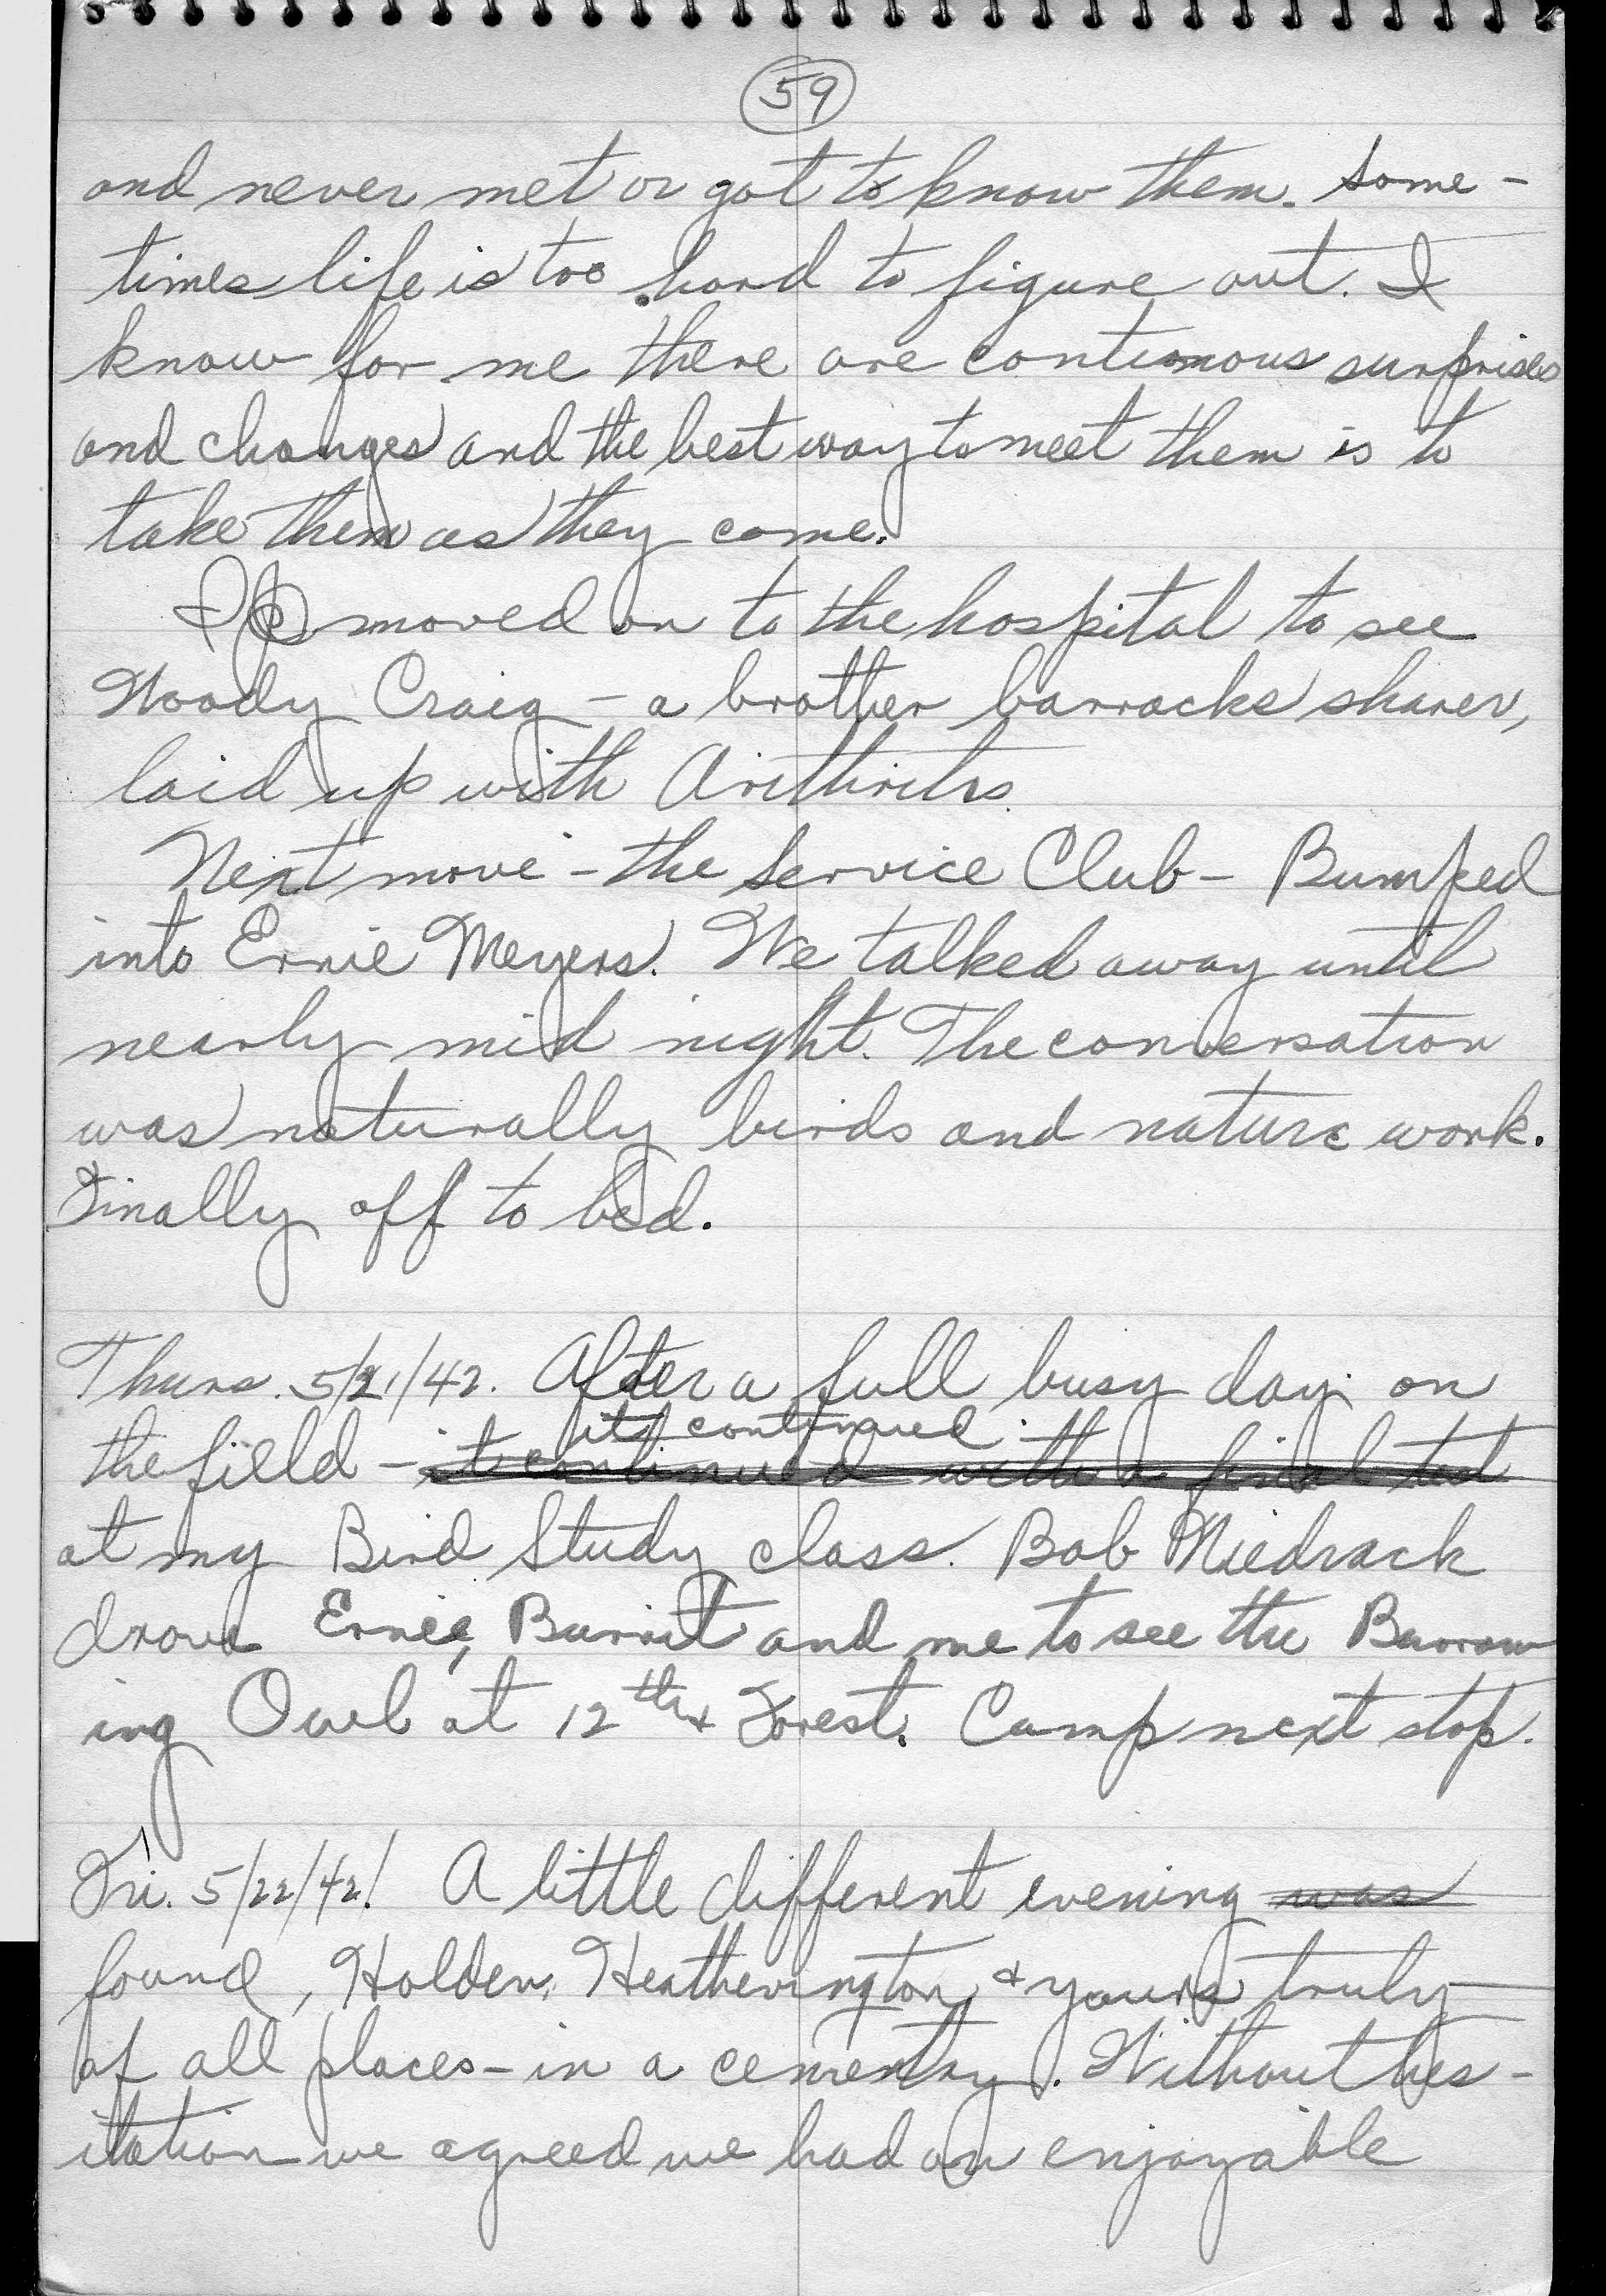 59
and never met or got to know them. Some-
times life is too hard to figure out. I
know for me there are continuous surprises
and changes and the best way to meet them is to
take them as they come.
I moved on to the hospital to see
Woody Craig - a brother barracks sharer,
laid up with Arithritis
Next move - the Service Club - Bumped
into Ernie Meyers. We talked away until
nearly mid night. The conversation
was naturally birds and nature work.
Finally off to bed.
Thurs. 5/21/42. After a full busy day on
it continued
the field - it continued with a final test
at my Bird Study class. Bob Niedrack
drove Ernie, Burrit and me to see the Burrow
ing Owl at 12th & Forest. Camp next stop.
Fri. 5/22/42! A little different evening was
found, Holden, Heatherington, & yours truly
of all places - in a cemetary. Without hes-
itation we agreed we had an enjoyable